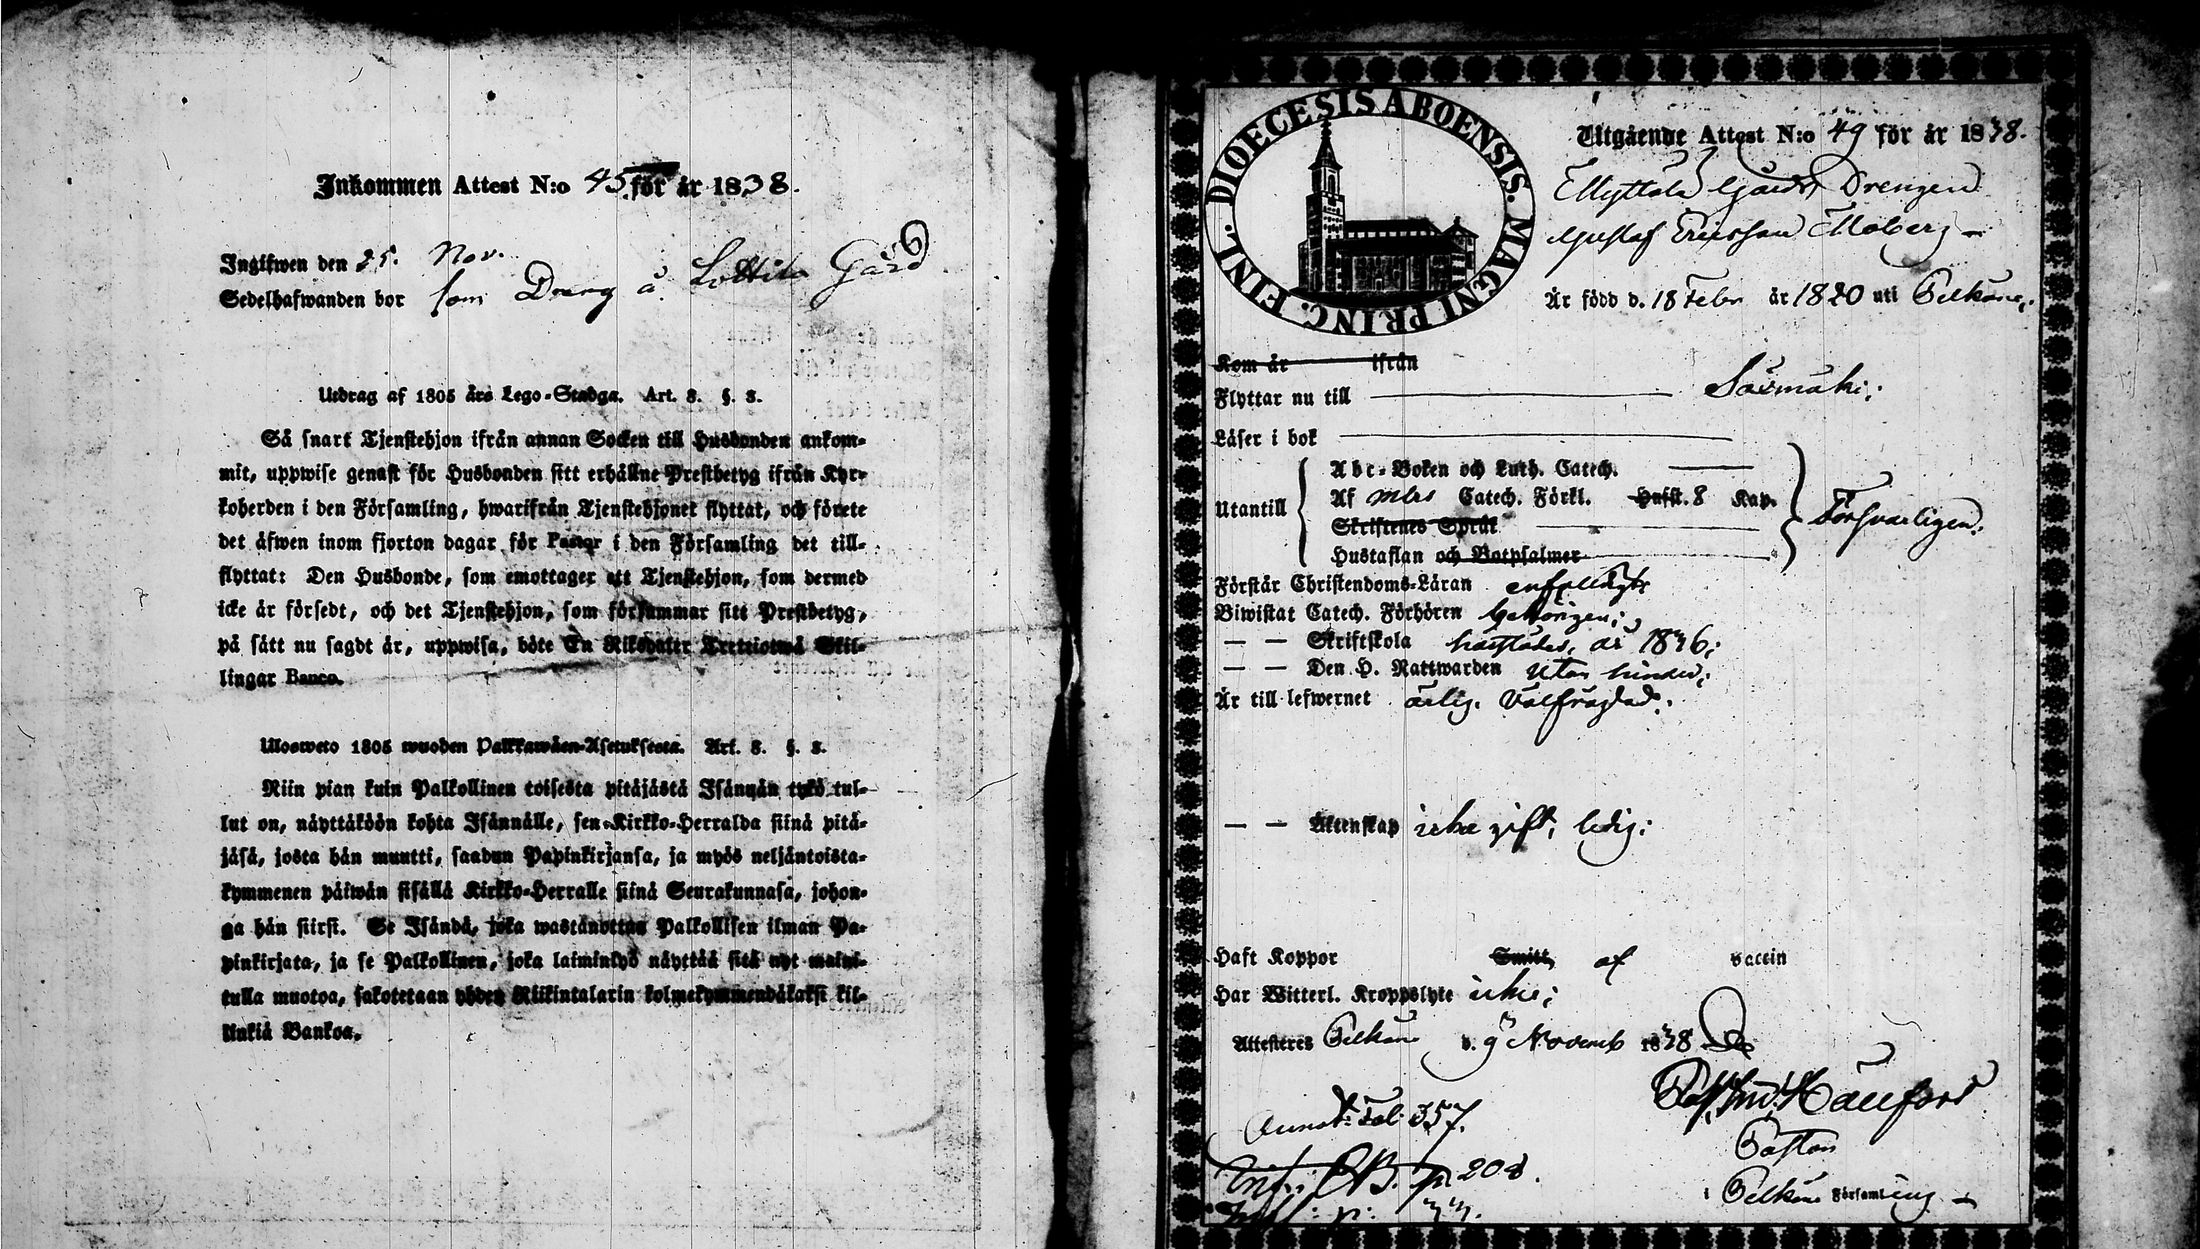 Inkommen Attest N:o 45 för år 1838.
Ingifwen den 25. Nov.
Sedelhafwanden bor som Dreng å Lottila Gård
Utdrag af 1805 års Lego-Stadga. Art. 3. §. 3.
Så snart Tjenstehjon ifrån annan Socken till Husbonden ankom-
mit, uppwise genast för Husbonden sitt erhållne Prestbetyg ifrån Kyr-
koherden i den Församling, hwarifrån Tjenstehjonet flyttat, och förete
det äfwen inom fjorton dagar för Pastor i den Församling det till-
flyttat: Den Husbonde, som emottager ett Tjenstehjon, som dermed
icke är försedt, och det Tjenstehjon, som försummar sitt Prestbetyg,
på sätt nu sagdt är, uppwisa, böte En Riksdaler Trettiotwå Skil-
lingar Banco.
Ulosweto 1805 wuoden Palkkawäen-Asetuksesta. Art. 3. §. 3.
Niin pian kuin Palkollinen toisesta pitäjästä Isännän tykö tul-
lut on, näyttäköön kohta Isännälle, sen Kirkko-Herralda siinä pitä-
jäsä, josta hän muutti, saadun Papinkirjansa, ja myös neljäntoista-
kymmenen päiwän sisällä Kirkko-Herralle siinä Seurakunnasa, johon-
ga hän siirsi. Se Isändä, joka wastanottaa Palkollisen ilman Pa-
pinkirjata, ja se Palkollinen, joka laiminlyö näyttää sitä nyt mainit-
tulla muotoa, sakotetaan yhden Riikintalarin kolmekymmendäkaksi kil-
linkiä Bankoa.
DIOECESIS ABOENSIS. MAGNI PRINC. FINL.
Utgående Attest N:o 49 för år 1838.
Gårds Drengen
Gustaf Ericsson Moberg
Är född d. 18 Febr år 1820 uti Pelkäne;
Kom år ifrån
Flyttar nu till Säxmäki;
Läser i bok
Abc-Boken och Luth. Catech.
Utantill Af Catech. Förkl. Hufst. 8 Kap. Försvarligen.
Skriftenes Språk
Hustaflan och Botpsalmer
Förstår Christendoms-Läran enfaldigt;
Biwistat Catech. Förhören behörigen;
— — Skriftskola härstädes, år 1836;
— — Den H. Nattwarden utan hinder;
Är till lefwernet ärlig, välfrägdad.
— — Äktenskap icke gift, ledig;
Haft Koppor Smitt, af vaccin
Har Witterl. Kroppslyte icke;
Attesteras Pelkäne d. 9 Novemb 1838
Annot: Fol. 357.
Pastor
208.
i Pelkäne Församling